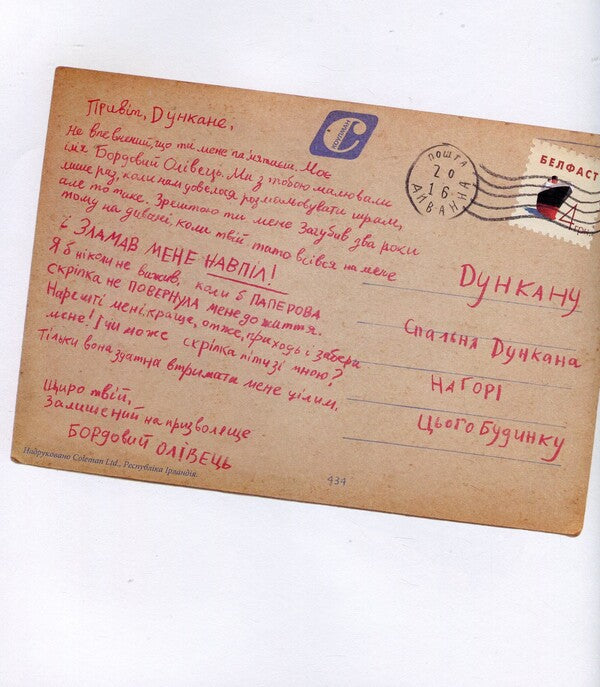 Привіт, Дункане,
Не впевнений, що ти мене пам'ятаєш. Моє
ім'я Бордовий Олівець. Ми з тобою малювали
лише раз, коли нам довелося розмальовувати шрам,
але то таке. Зрештою ти мене загубив два роки
тому на дивані, коли твій тато всівся на мене
і ЗЛАМАВ МЕНЕ НАВПІЛ!
Я б ніколи не вижив, коли б ПАПЕРОВА
СКРІПКА НЕ ПОВЕРНУЛА мене до життя.
Нарешті мені краще, отже, приходь і забери
мене! І чи може скріпка піти зі мною?
Тільки вона здатна втримати мене цілим.
Щиро твій,
Залишений на призволяще
БОРДОВИЙ ОЛІВЕЦЬ
Надруковано Coleman Ltd., Республіка Ірландія.
434
КОУЛМАН
ПОШТА
20
16
ДИВАННА
БЕЛФАСТ
4
ДУНКАНУ
Спальня Дункана
НАГОРІ
Цього Будинку